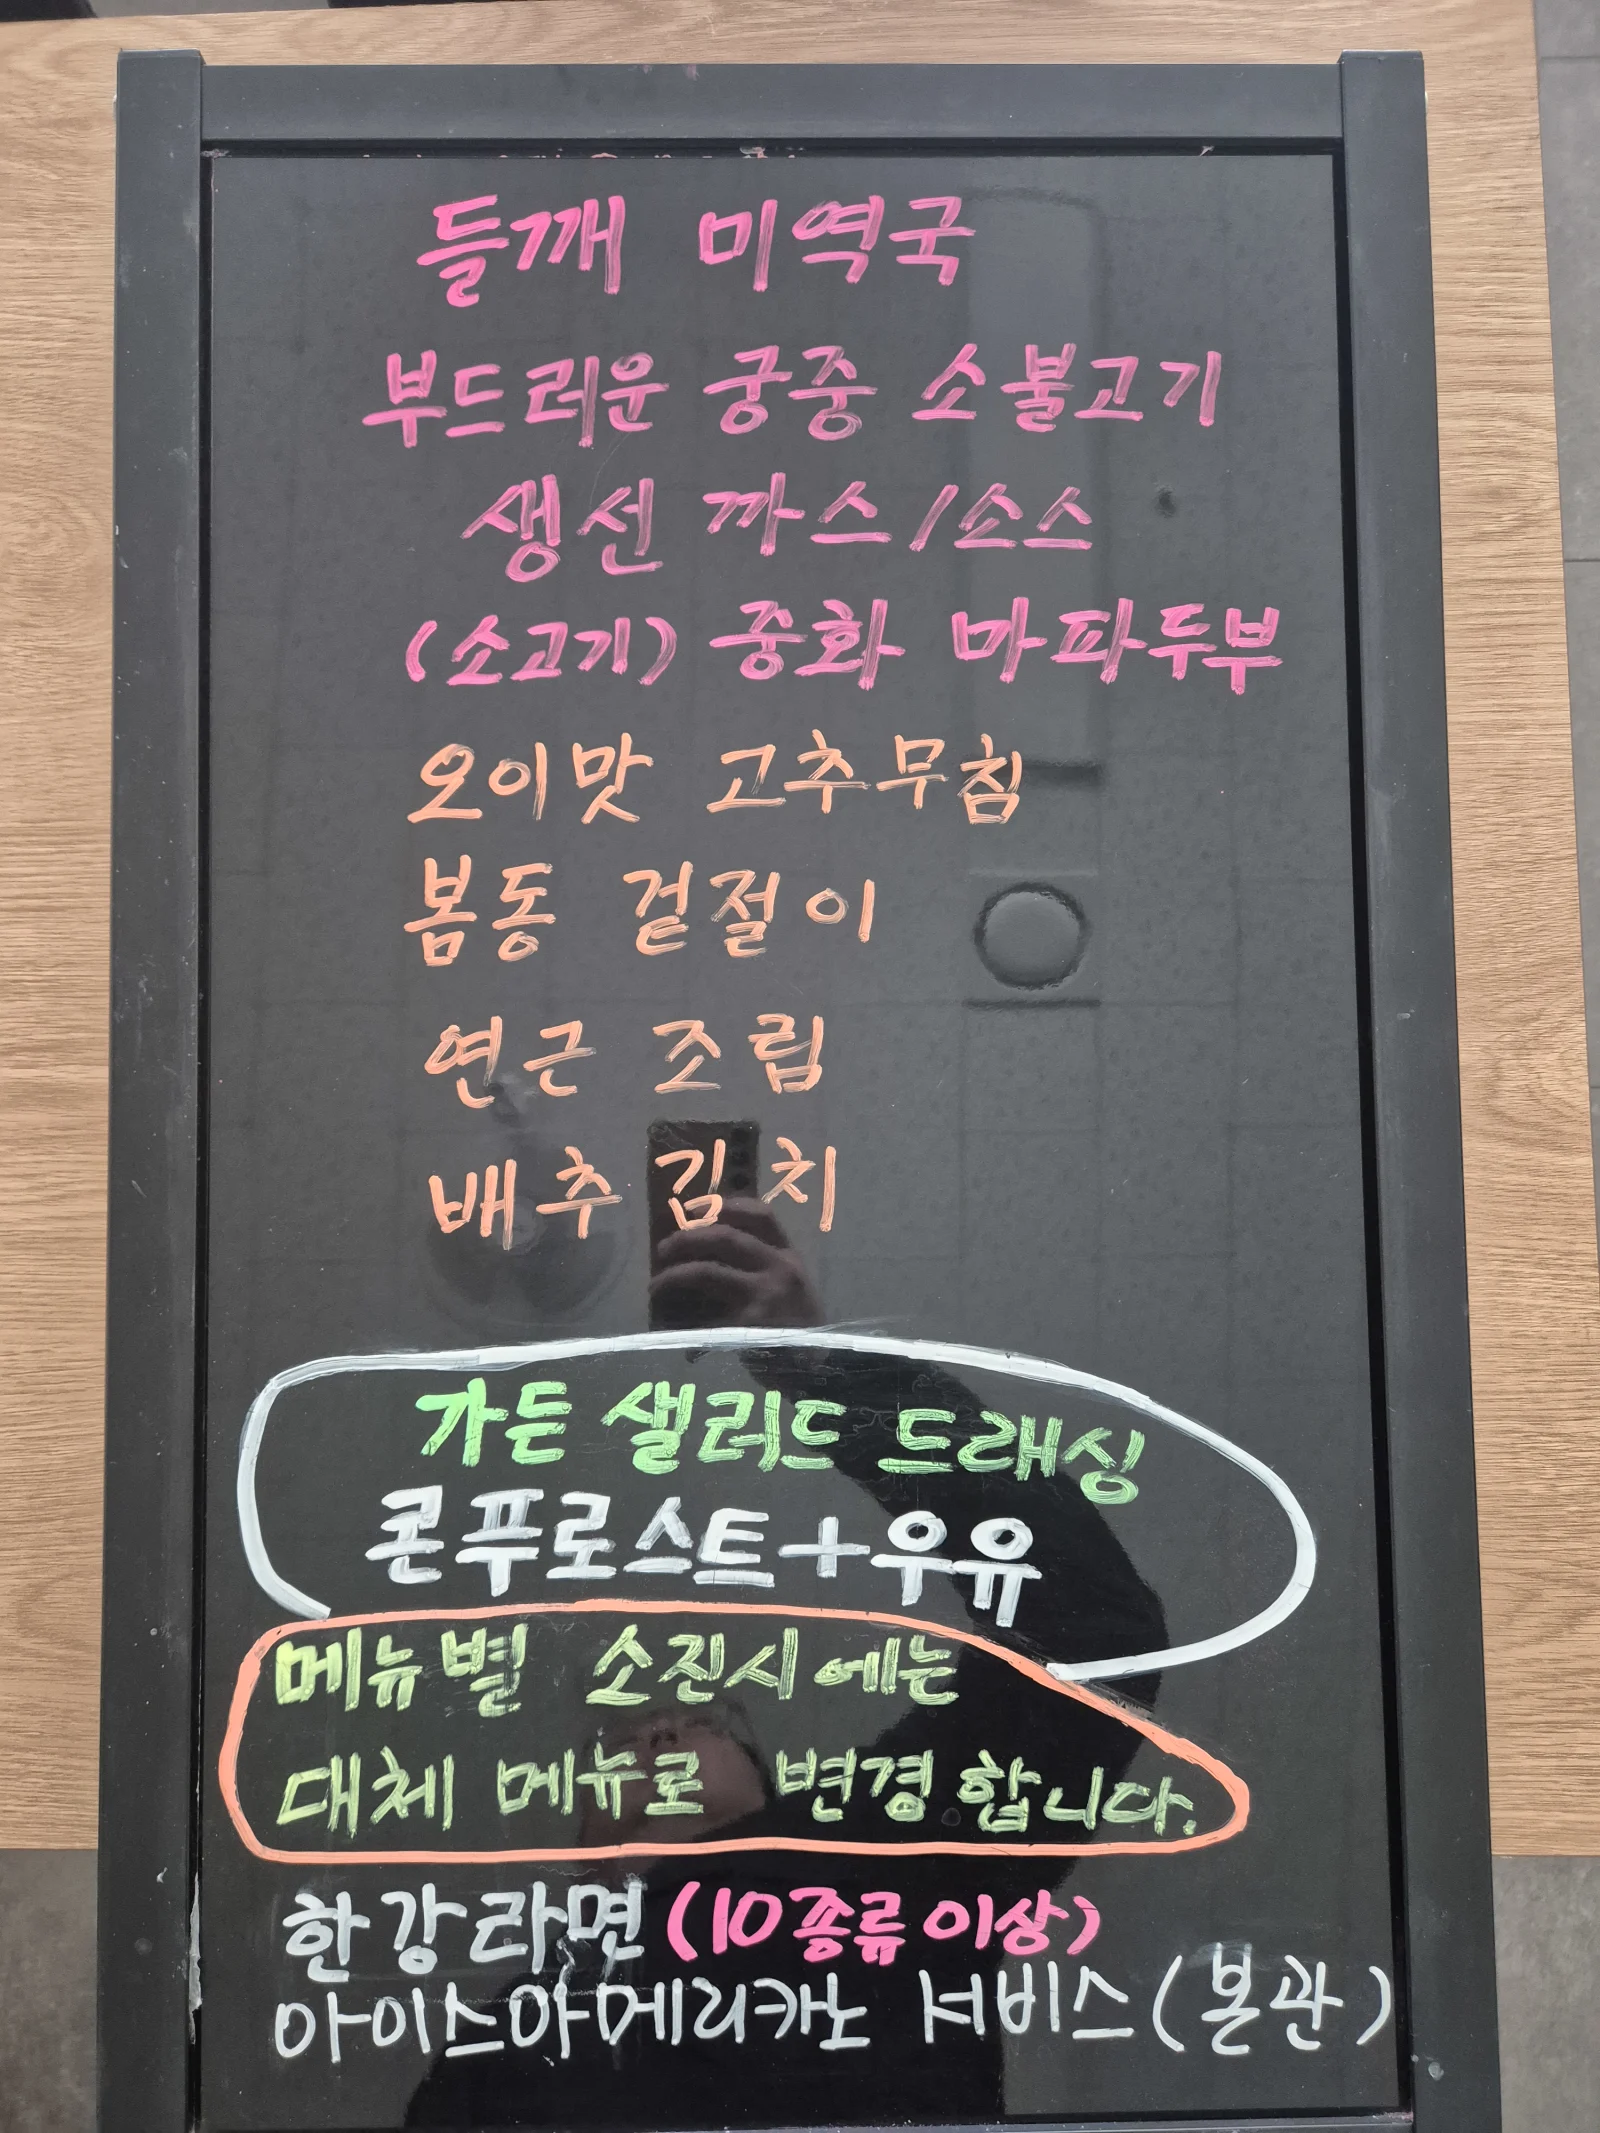 들깨 미역국
부드러운 궁중 소불고기
생선 까스/소스
(소고기) 중화 마파두부
오이맛 고추무침
봄동 겉절이
연근 조림
배추김치
가든 샐러드 드래싱
콘푸로스트+우유
메뉴별 소진시에는
대체 메뉴로 변경합니다.
한강라면(10종류이상)
아이스아메리카노 서비스(본관)